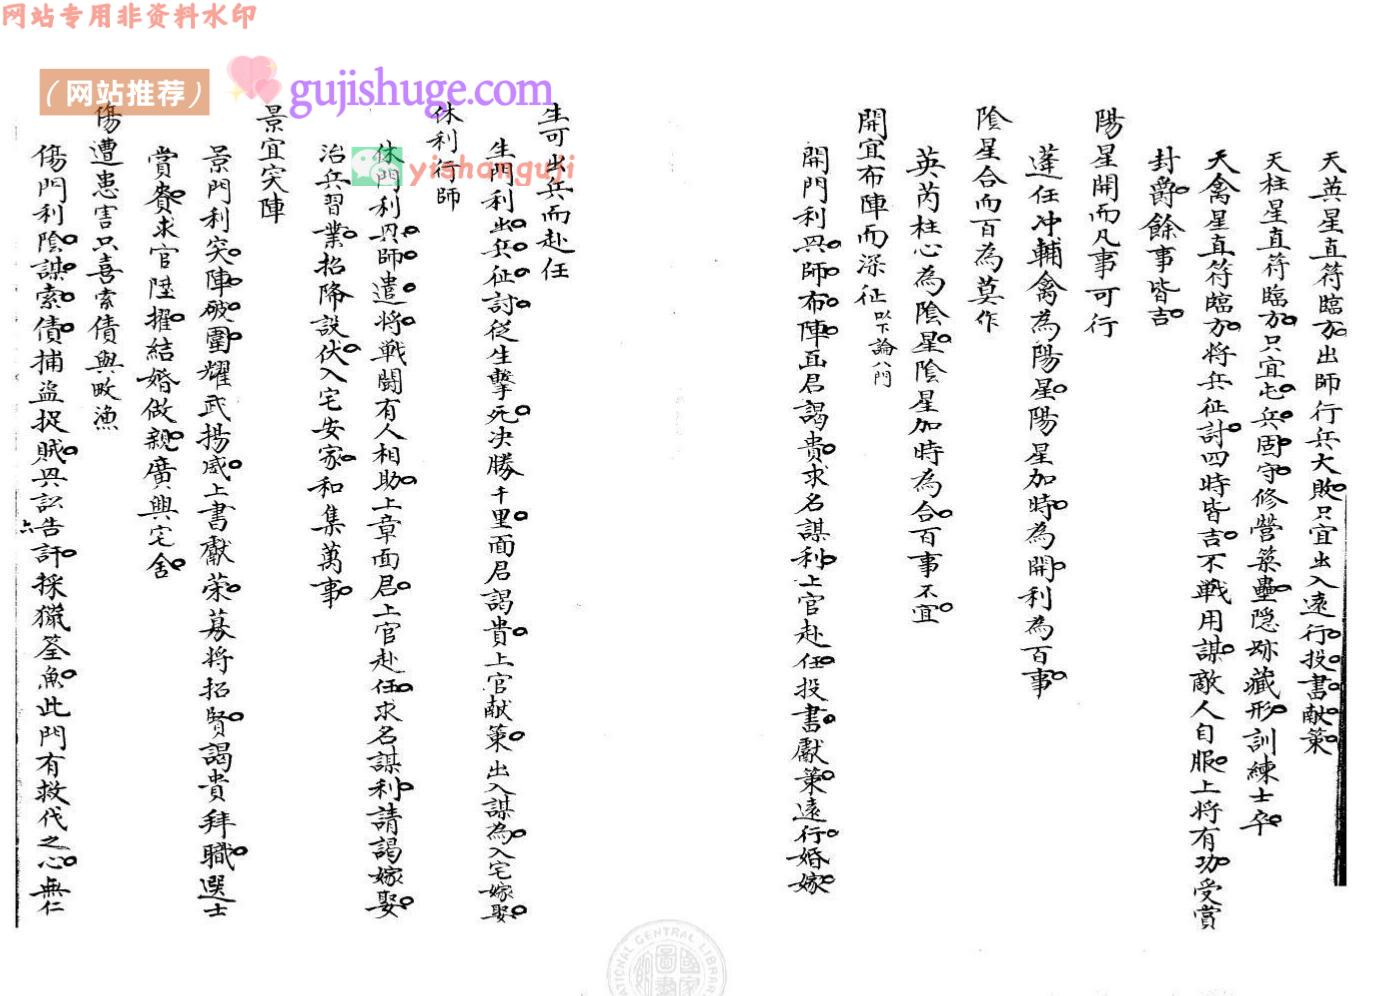 网站专用非资料水印
（网站推荐）
gujishuge.com
yishanguji
天英星直符臨方出師行兵大敗只宜出入遠行投書献策
天柱星直符臨方只宜屯兵固守修營築壘隐跡藏形訓練士卒
天禽星直符臨方将兵征討四時皆吉不戦用謀敵人自服上将有功受賞
封爵餘事皆吉
陽星開而凡事可行
蓬任冲輔禽為陽星陽星加時為開利為百事
陰星合而百為莫作
英芮柱心為陰星陰星加時為合百事不宜
開宜布陣而深征以下論八門
開門利興師布陣面君謁貴求名謀利上官赴任投書獻策遠行婚嫁
生可出兵而赴任
生門利出兵征討從生擊死决勝千里面君謁貴上官献策出入謀為入宅嫁娶
休利行師
休門利興師遣将戦闘有人相助上章面君上官赴任求名謀利請謁嫁娶
治兵習業招降設伏入宅安家和集萬事
景宜突陣
景門利突陣破圍耀武揚威上書獻策募将招賢謁貴拜職選士
賞賚求官陞擢結婚做親廣興宅舍
傷遭患害只喜索債與畋漁
傷門利陰謀索債捕盗捉賊興訟告訐採獵筌魚此門有救代之心無仁
六
NATIONAL CENTRAL LIBRARY